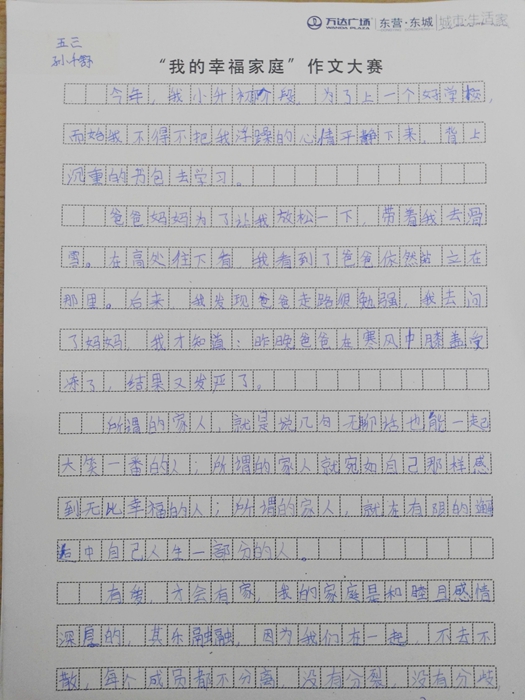 万达广场 WANDA PLAZA 东营·东城 城市·生活家
五三
孙千舒
“我的幸福家庭”作文大赛
今年，我小升初阶段，为了上一个好学校，
而妈我不得不把我浮躁的心情平静下来，背上
沉重的书包去学习。
爸爸妈妈为了让我放松一下，带着我去滑
雪。在高处往下看，我看到了爸爸依然站立在
那里。后来，我发现爸爸走路很勉强，我去问
了妈妈，我才知道：昨晚爸爸在寒风中膝盖受
冻了，结果又发严了。
所谓的家人，就是说几句无聊话也能一起
大笑一番的人；所谓的家人就宛如自己那样感
到无比幸福的人；所谓的家人，就在有限的
中自己人生一部分的人。
有，才会有家，我的家庭是和睦且感情
深的，其乐融融，因为我们在一起，不去不
散，每个成员都不分离，没有分裂，没有分歧